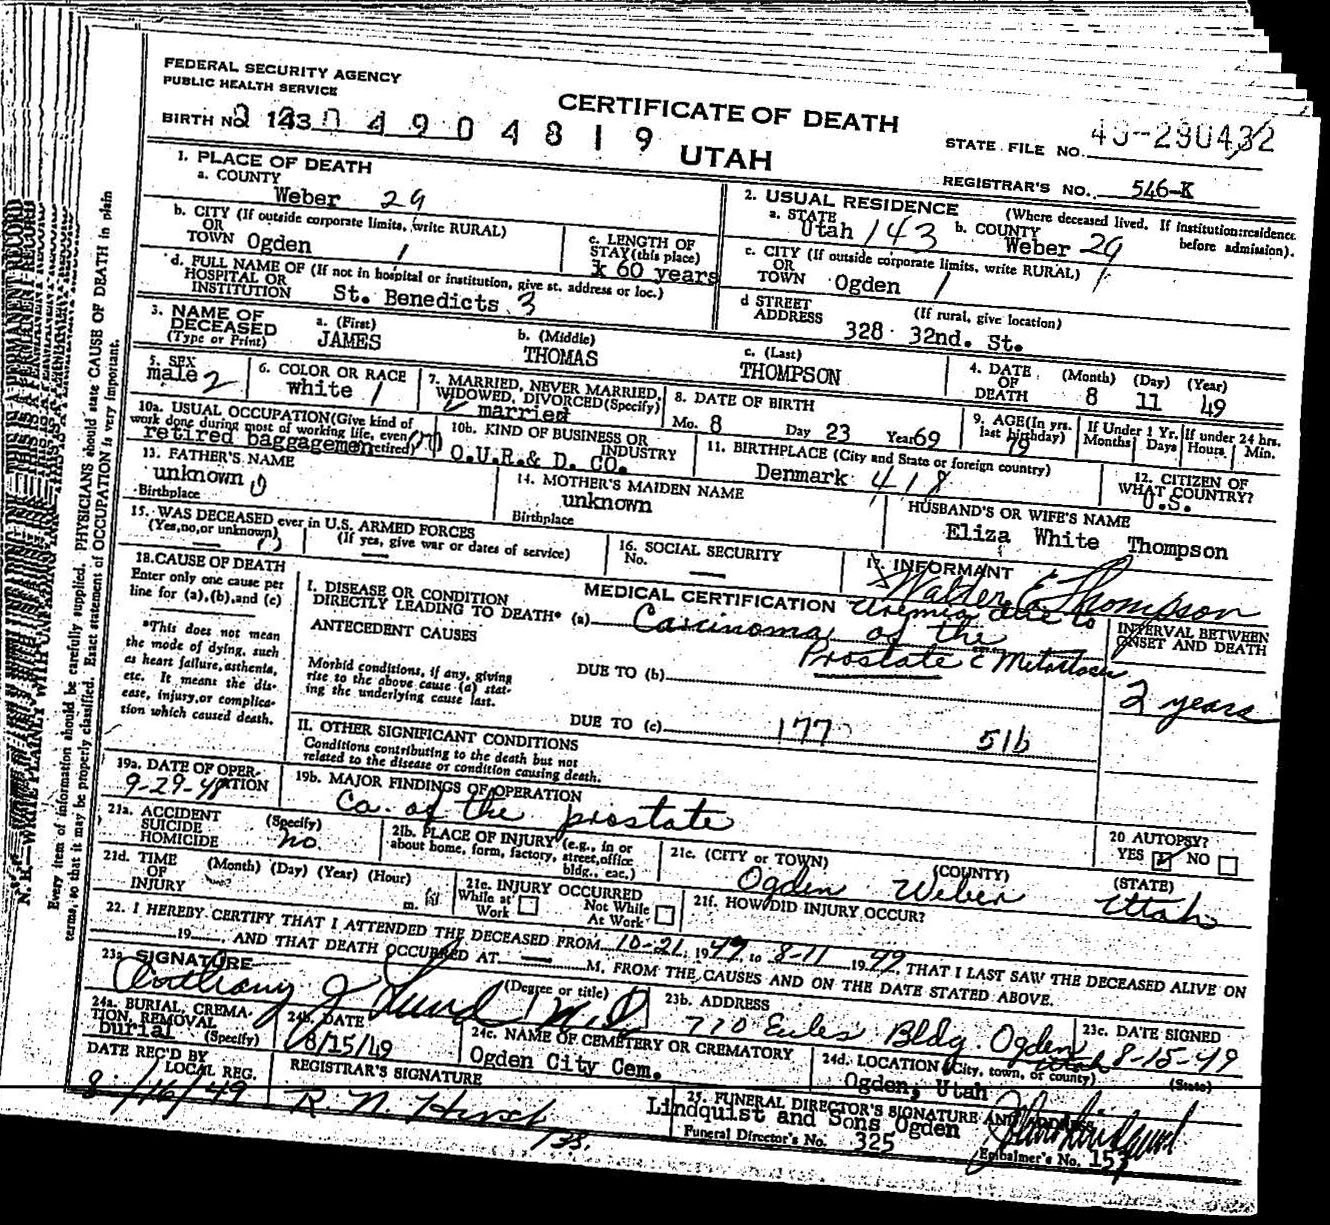 FEDERAL SECURITY AGENCY
PUBLIC HEALTH SERVICE
CERTIFICATE OF DEATH
BIRTH NO. 143 0 4 9 0 4 8 1 9 UTAH
STATE FILE NO.
REGISTRAR'S NO. 546-K
1. PLACE OF DEATH
a. COUNTY
Weber 29
b. CITY (If outside corporate limits, write RURAL)
OR
TOWN Ogden 1
c. LENGTH OF
STAY (this place)
60 years
d. FULL NAME OF (If not in hospital or institution, give st. address or loc.)
HOSPITAL OR
INSTITUTION St. Benedicts 3
2. USUAL RESIDENCE (Where deceased lived. If institution:residence
before admission).
a. STATE
Utah 143
b. COUNTY
Weber 29
c. CITY (If outside corporate limits, write RURAL)
OR
TOWN Ogden 1
d STREET (If rural, give location)
ADDRESS 328 32nd. St.
3. NAME OF
DECEASED
(Type or Print)
a. (First)
JAMES
b. (Middle)
THOMAS
c. (Last)
THOMPSON
4. DATE (Month) (Day) (Year)
OF
DEATH 8 11 49
5. SEX
male 2
6. COLOR OR RACE
white 1
7. MARRIED, NEVER MARRIED,
WIDOWED, DIVORCED (Specify)
married
8. DATE OF BIRTH
Mo. 8 Day 23 Year 69
9. AGE (In yrs.
last birthday)
79
If Under 1 Yr.
Months Days
If under 24 hrs.
Hours Min.
10a. USUAL OCCUPATION (Give kind of
work done during most of working life, even
retired baggageman retired)
10b. KIND OF BUSINESS OR
INDUSTRY
O.U.R.& D. CO.
11. BIRTHPLACE (City and State or foreign country)
Denmark 418
12. CITIZEN OF
WHAT COUNTRY?
U.S.
13. FATHER'S NAME
unknown
Birthplace
14. MOTHER'S MAIDEN NAME
unknown
Birthplace
HUSBAND'S OR WIFE'S NAME
Eliza White Thompson
15. WAS DECEASED ever in U.S. ARMED FORCES
(Yes, no, or unknown) (If yes, give war or dates of service)
16. SOCIAL SECURITY
No.
17. INFORMANT
Walter E Thompson
18. CAUSE OF DEATH
Enter only one cause per
line for (a), (b), and (c)
*This does not mean
the mode of dying, such
as heart failure, asthenia,
etc. It means the dis-
ease, injury, or complica-
tion which caused death.
MEDICAL CERTIFICATION
I. DISEASE OR CONDITION
DIRECTLY LEADING TO DEATH* (a) Uremia due to
Carcinoma of the
Prostate c Metastases
ANTECEDENT CAUSES
Morbid conditions, if any, giving
rise to the above cause (a) stat-
ing the underlying cause last.
DUE TO (b)
DUE TO (c) 177 51b
INTERVAL BETWEEN
ONSET AND DEATH
2 years
II. OTHER SIGNIFICANT CONDITIONS
Conditions contributing to the death but not
related to the disease or condition causing death.
19a. DATE OF OPER-
ATION
9-29-48
19b. MAJOR FINDINGS OF OPERATION
Ca. of the prostate
20 AUTOPSY?
YES NO
21a. ACCIDENT
SUICIDE
HOMICIDE
(Specify)
no
21b. PLACE OF INJURY (e.g., in or
about home, form, factory, street, office
bldg., eac.)
21c. (CITY or TOWN) (COUNTY) (STATE)
Ogden Weber Utah
21d. TIME (Month) (Day) (Year) (Hour)
OF
INJURY m.
21e. INJURY OCCURRED
While at Work
Not While At Work
21f. HOW DID INJURY OCCUR?
22. I HEREBY CERTIFY THAT I ATTENDED THE DECEASED FROM 10-21, 1947, to 8-11 1949, THAT I LAST SAW THE DECEASED ALIVE ON
19 , AND THAT DEATH OCCURRED AT M. FROM THE CAUSES AND ON THE DATE STATED ABOVE.
23a. SIGNATURE (Degree or title)
Anthony J Lund M.D.
23b. ADDRESS
770 Eccles Bldg. Ogden Utah
23c. DATE SIGNED
8-15-49
24a. BURIAL, CREMA-
TION, REMOVAL
(Specify)
burial
24b. DATE
8/15/49
24c. NAME OF CEMETERY OR CREMATORY
Ogden City Cem.
24d. LOCATION (City, town, or county) (State)
Ogden, Utah
DATE REC'D BY
LOCAL REG.
8/16/49
REGISTRAR'S SIGNATURE
25. FUNERAL DIRECTOR'S SIGNATURE AND ADDRESS
Lindquist and Sons Ogden
Funeral Director's No. 325
Embalmer's No. 153
Every item of information should be carefully supplied. PHYSICIANS should state CAUSE OF DEATH in plain
terms, so that it may be properly classified. Exact statement of OCCUPATION is very important.